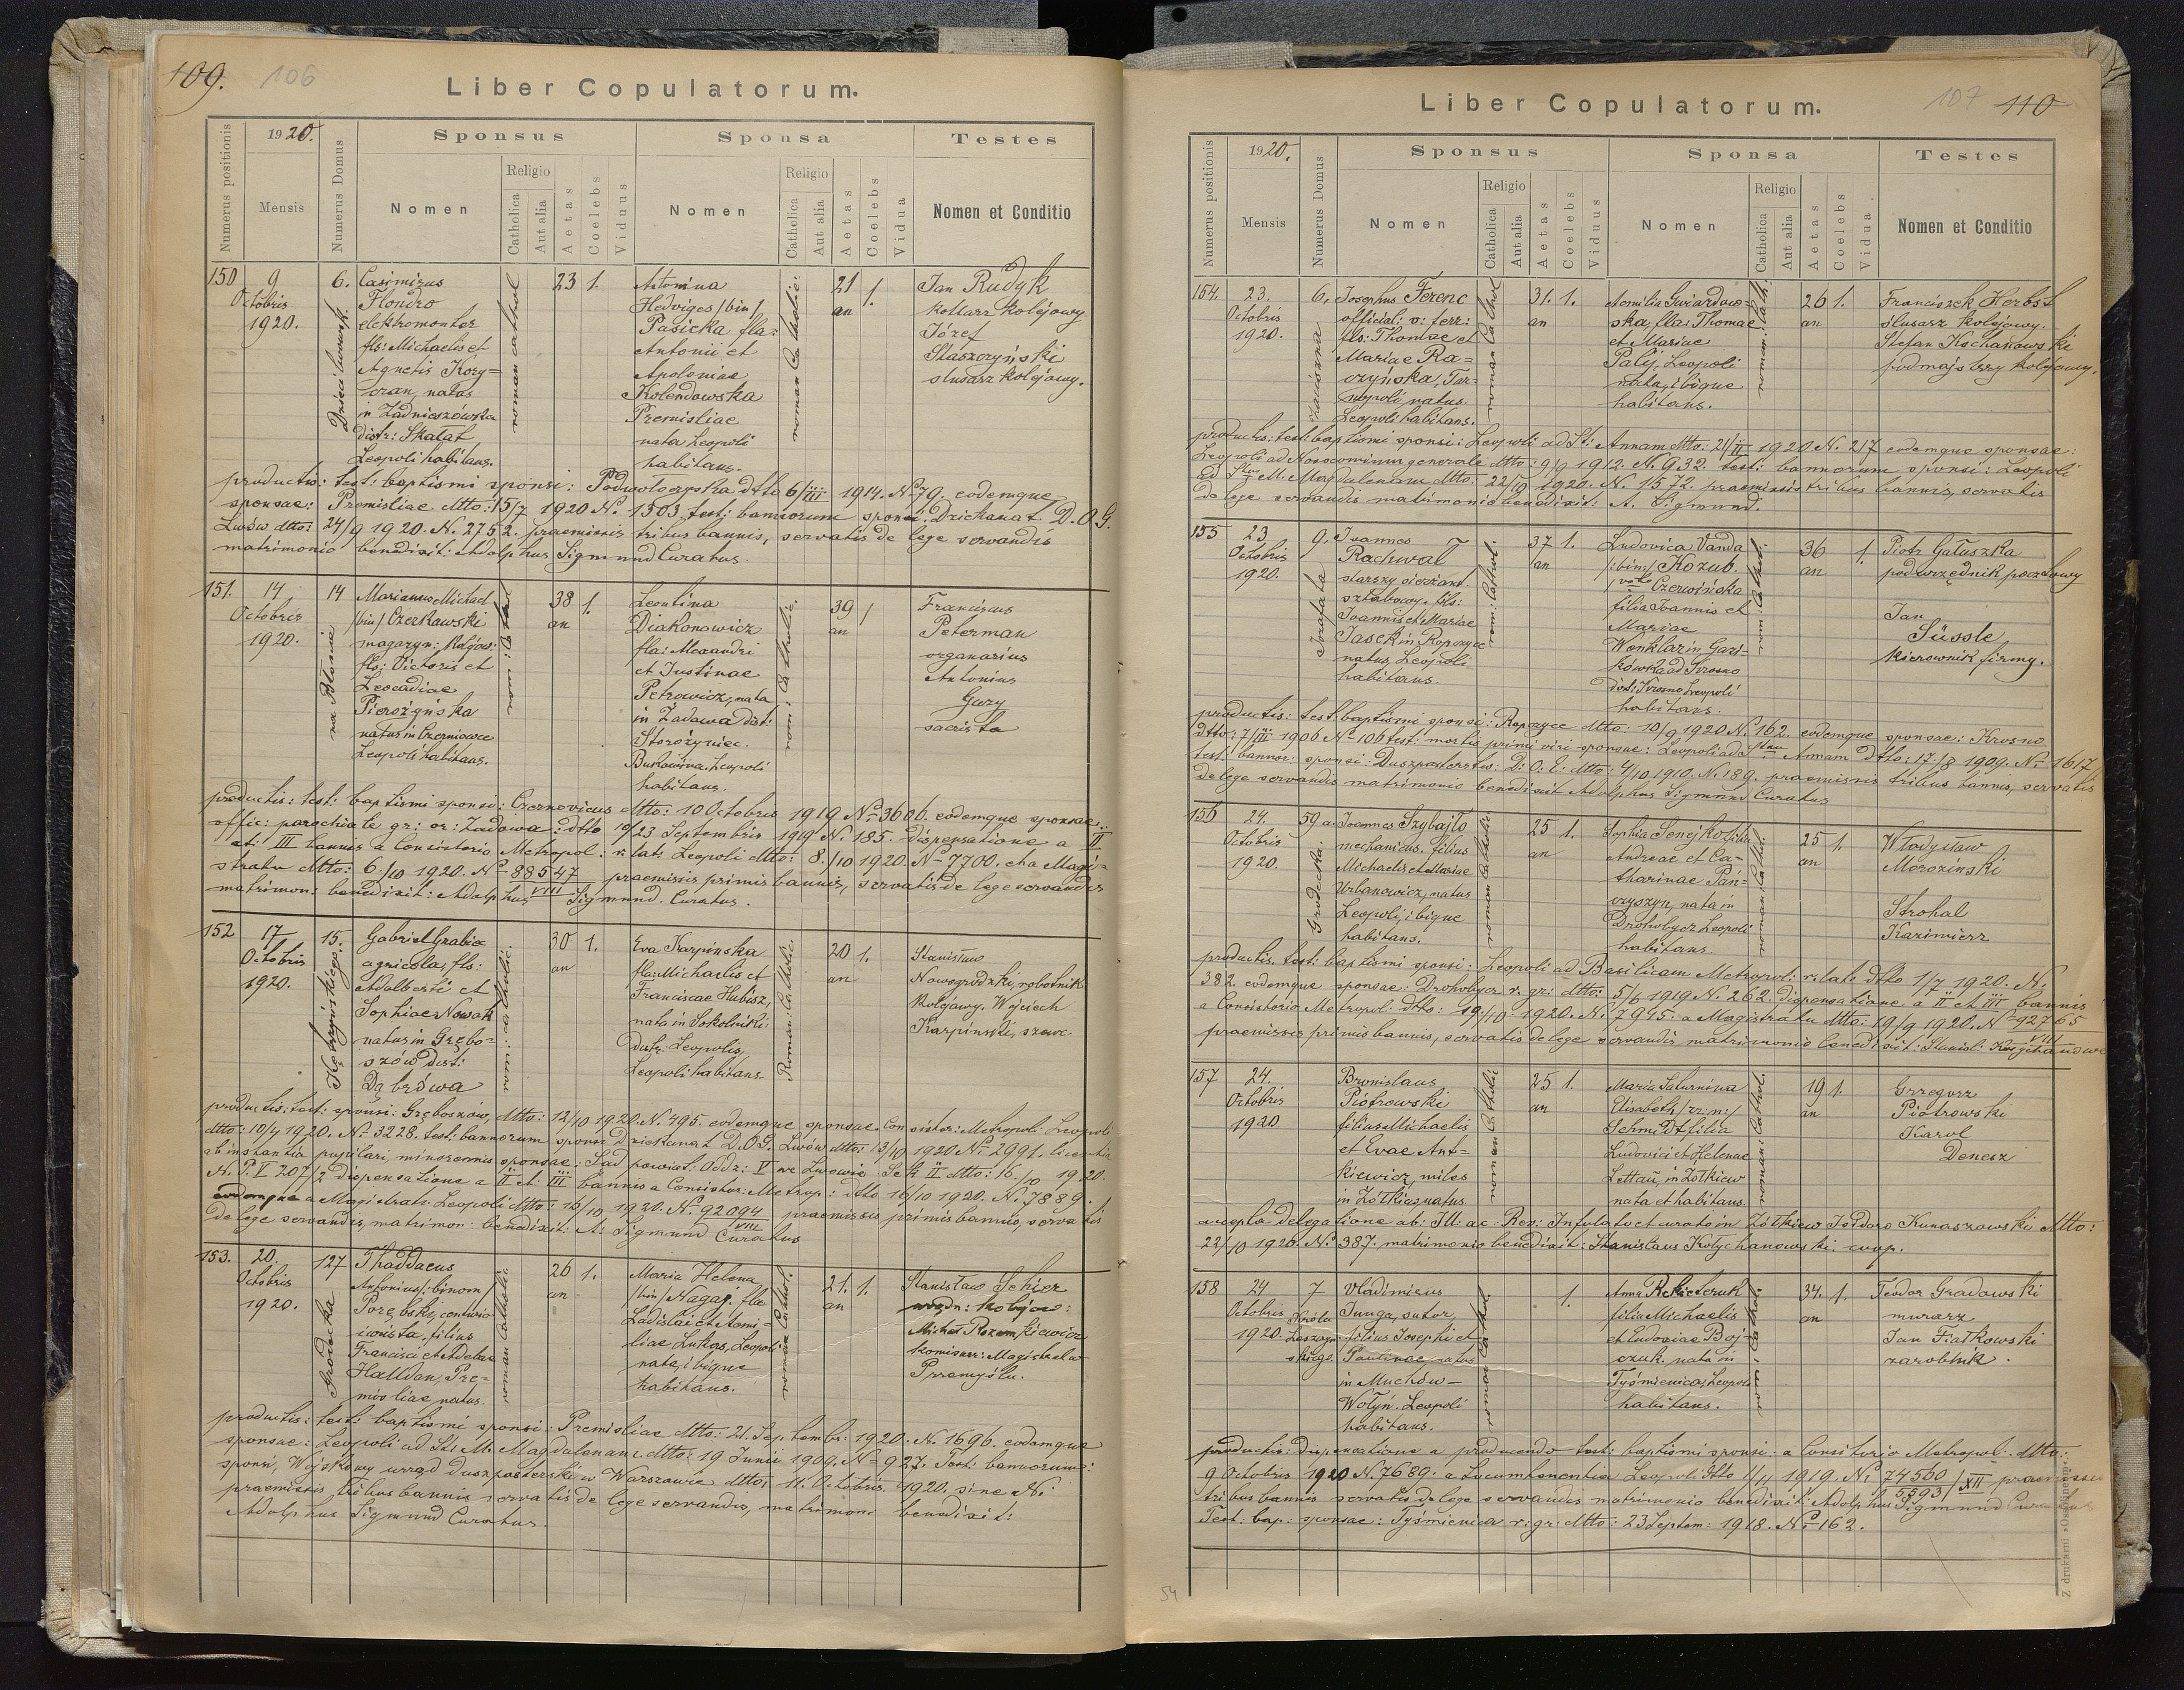 109. 106
Liber Copulatorum.
Numerus positionis
1920.
Mensis
Numerus Domus
Sponsus
Nomen
Religio
Catholica
Aut alia
Aetas
Coelebs
Viduus
Sponsa
Nomen
Religio
Catholica
Aut alia
Aetas
Coelebs
Vidua
Testes
Nomen et Conditio
150
9
Octobris
1920.
6.
Casimirus
Flondro
elektromonter
fls: Michaelis et
Agnetis Kory=
zran, natus
in Zadnieszówka
distr: Skałat
Leopoli habitans.
roman cathol
23 1.
Antonina
Hedviges /bin/
Pasicka, fla:
Antonii et
Apoloniae
Kolendowska
Premisliae
nata Leopoli
habitans.
roman Catholic:
21 1.
an
Jan Rudyk
kotlarz kolejowy
Józef
Staszczyński
slusarz kolejowy.
productis: test: baptismi sponsi: Podwołoczyska dtto 6/III 1914. No 79. eodemque
sponsae: Premisliae dtto: 15/7 1920 N. 1503 test: bannorum sponsi: Dziekanat D.O.G.
Lwów dtto: 24/9 1920. N. 2752. praemissis tribus bannis, servatis de lege servandis
matrimonio benedixit: Adolphus Sigmund Curatus.
151.
14
Octobris
1920.
14
na Błonie
Marianus Michael
/bin/ Czerkawski
magazyn: kolejow:
fls: Victoris et
Leocadiae
Pierożyńska
natus in Czerniowce
Leopoli habitans.
38 1.
an
Leontina
Diakonowicz
fla: Alexandri
et Justinae
Petrowicz, nata
in Zadawa Dist:
Storożyniec.
Bukowina. Leopoli
habitans.
rom: Catholic.
39 1
an
Franciscus
Peterman
organarius
Antonius
Gury
sacrista
productis: test: baptismi sponsi: Czernovicus dtto: 10 Octobris 1919 No 3606. eodemque sponsae:
offic: parochiale gr: or: Zadowa: dtto 10/23 Septembris 1919 N. 185. dispensatione a II
et: III bannis a Consistorio Metropol: r: lat: Leopoli dtto: 8./10 1920. No 7700. et a Magi=
stratu dtto: 6/10 1920. No 88547/VIII praemissis primis bannis, servatis de lege servandis
matrimon: benedixit: Adolphus Sigmund. Curatus.
152
17
Octobris
1920.
15.
Kętrzyńskiego.
Gabriel Grabie
agricola, fls:
Adalberti et
Sophiae Nowak
natus in Grębo=
szów Dist:
Dąbrówa
rom: catholic.
30 1.
an
Eva Karpinska
fla: Michaelis et
Franciscae Hubisz,
nata in Sokolniki
Distr. Leopolis,
Leopoli habitans.
Roman: Catholic.
20 1.
an
Stanisław
Nowogrodzki, robotnik
kolejowy. Wojciech
Karpiński, szewc.
productis: test: sponsi: Gręboszów, dtto: 12/10 1920. N. 495. eodemque sponsae Consistor: Metropol: Leopoli
dtto: 10/7 1920. No 3228. test: bannorum sponsi Dziekanat D.O.G. Lwów dtto: 13/10 1920 No 2991. licentia
ab instantia pupilari minorennis sponsae: Sąd powiat: Oddz: V we Lwowie Sek II dtto: 16./10 1920.
N. P. I 207/2 dispensatione a II et: III bannis a Consistor: Metrop: dtto 16/10 1920. No: 7889.
eodemque a Magistratu Leopoli dtto: 16/10 1920. No. 92094/VIII praemissis primis bannis, servatis
de lege servandis, matrimon: benedixit: A: Sigmund Curatus
153.
20.
Octobris
1920.
127
Grodecka
Thaddaeus
Antonius /:binom/
Porębski, centurio
filius
Francisci et Adelae
Halldan, Pre=
misliae natus.
roman catholic.
26 1.
an
Maria Helena
/bin/ Nagaj. fla
Ladislai et Aemi=
liae Lukas, Leopoli
nata, ibique
habitans.
roman Cathol.
21. 1.
an
Stanisław Schier
urzędn: kolejow:
Michał Rozemkiewicz
komisarz: Magistratu
Przemyślu.
productis: test: baptismi sponsi: Premisliae dtto: 21. Septembr: 1920. N. 1696. eodemque
sponsae: Leopoli ad St: M. Magdalenam dtto: 19 Junii 1904. No 927. Test: bannorum:
sponsi, Wojskowy urząd Duszpasterski w Warszawie dtto: 11. Octobris 1920. sine N:
praemissis tribus bannis servatis de lege servandis, matrimoni benedixit:
Adolphus Sigmund Curatus.
Liber Copulatorum.
107 110
Numerus positionis
1920.
Mensis
Numerus Domus
Sponsus
Nomen
Religio
Catholica
Aut alia
Aetas
Coelebs
Viduus
Sponsa
Nomen
Religio
Catholica
Aut alia
Aetas
Coelebs
Vidua
Testes
Nomen et Conditio
154.
23.
Octobris
1920.
6.
Josephus Ferenc
official: v: ferr:
fls: Thomae et
Mariae Ra=
czyńska, Tar=
nopoli natus.
Leopoli habitans.
roman Cathol
31. 1.
an
Aemilia Gwiazdow=
ska, fla: Thomae
et Mariae
Palij, Leopoli
nata, ibique
habitans.
roman: cath.
26 1.
an
Franciszek Herbst
slusarz kolejowy.
Stefan Kochanowski
podmajstrzy kolejowy.
productis: test: baptismi sponsi: Leopoli ad St: Annam dtto: 21/II 1920 N. 217 eodemque sponsae:
Leopoli ad Nosocomium generale dtto: 9/9 1912. N. 932. test: bannorum sponsi: Leopoli
ad Stam M. Magdalenam dtto: 22/9 1920. N. 1572. praemissis tribus bannis, servatis
de lege servandis matrimonio benedixit: A. Sigmund.
155
23
Octobris
1920.
9.
Josafata
Ioannes
Rachwał
starszy sierżant
sztabowy. fls:
Ioannis et Mariae
Jasek in Ropczyce
natus, Leopoli
habitans.
rom: cathol:
37 1.
an
Ludovica Vanda
/:bin:/ Kozub.
/voto Czerwińska
filia Ioannis et
Mariae
Wonklar in
ad Krosno
Dist: Krosno Leopoli
habitans.
rom: cathol:
36 1.
an
Piotr Gałuszka
podurzędnik pocztowy
Jan
Süssle
kierownik firmy.
productis: test: baptismi sponsi: Ropczyce dtto: 10/9 1920 N. 162. eodemque sponsae: Krosno
dtto: 7/III 1906 No 106 test: mortis primi viri sponsae: Leopoli ad Stam Annam dtto: 17/8 1909. No 1617
test: bannor: sponsi: Duszpasterstw: D: O. E: dtto: 4/10 1910. N. 189. praemissis tribus bannis, servatis
de lege servandis matrimonio benedixit Adolphus Sigmund Curatus
156
24.
Octobris
1920.
59 a.
Grodecka.
Ioannes Szybajło
mechanicus. filius
Michaelis et Mariae
Urbanowicz, natus
Leopoli, ibique
habitans.
roman catholic
25 1.
an
Sophia Senejko filia
Andreae et Ca=
tharinae Pań=
czyszyn, nata in
Drohobycz Leopoli
habitans.
roman: cathol:
25 1.
an
Władysław
Morozinski
Strohal
Kazimierz
productis. test: baptismi sponsi: Leopoli ad Basilicam Metropol: r. lat: dtto 1/7 1920. N.
382 eodemque sponsae: Drohobycz r. gr: dtto: 5/6 1919 N. 262. dispensatione a II et III bannis
a Consistorio Metropol: dtto: 19/10 1920. N. 7945. a Magistratu dtto: 19/9 1920. No 92765/VIII
praemissis primis bannis, servatis de lege servandis matrimonio benedixit: Stanisl:
157
24.
Octobris
1920
Bronislaus
Piotrowski
filius Michaelis
et Evae Ant=
kiewicz, miles
in Żółkiew natus.
roman Catholic
25 1.
an
Maria Saturnina
Elisabeth /:tri:n:/
Schmidt filia
Ludovici et Helenae
Lettau, in Żółkiew
nata et habitans.
roman: Cathol.
19 1.
an
Grzegorz
Piotrowski
Karol
Denesz
accepta delegatione ab: Ill: ac Rev: Infulato et curato in Żółkiew Isidoro Kunaszowski dtto:
22/10 1920. N. 387. matrimonio benedixit: Stanislaus Kołychanowski. coop.
158
24
Octobris
1920.
7
Króla
Leszczyń
skiego
Vladimirus
Junga, sutor,
filius Josephi et
Paulinae, natus
in Muchów—
Wołyń. Leopoli
habitans.
roman cathol
1.
Anna Rekietczuk
filia Michaelis
et Eudoxiae Boj=
czuk. nata in
Tyśmienica, Leopoli
habitans.
34. 1.
an
Teodor Gradowski
murarz
Jan Fiałkowski
zarobnik.
productis: Dispensatione a producendo test: baptismi sponsi a Consistorio Metropol: dtto:
9 Octobris 1920 N. 7689. a Locumtenentia Leopoli dtto 1/11 1919. N. 74560/5593/XII praemissis
tribus bannis servatis de lege servandis matrimonio benedixit: Adolphus Sigmund Curatus
Test: bap: sponsae: Tyśmienica r: gr: dtto: 23 Septem: 1918. No 162.
54
Z drukarni »Ossolineum«.